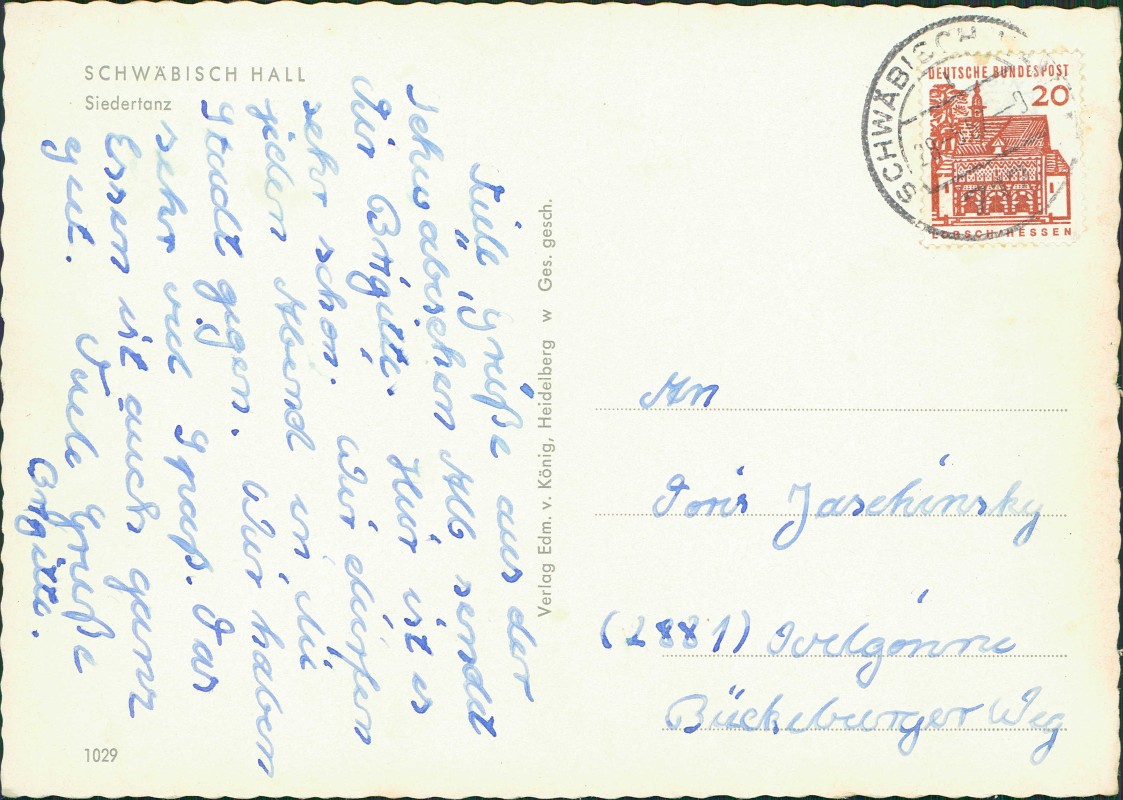 SCHWÄBISCH HALL
Siedertanz
Viele Grüße aus der
schwäbischen Alb sendet
Dir Brigitte. Hier ist es
sehr schön. Wir dürfen
jeden Abend in die
Stadt gegen. Wir haben
sehr viel Spaß. Das
Essen ist auch ganz
gut. Viele Grüße
Brigitte.
1029
Verlag Edm. v. König, Heidelberg w Ges. gesch.
SCHWÄBISCH
DEUTSCHE BUNDESPOST
20
LORSCH/HESSEN
An
Doris Jaschinsky
(2881) Ovelgönne
Bückeburger Weg